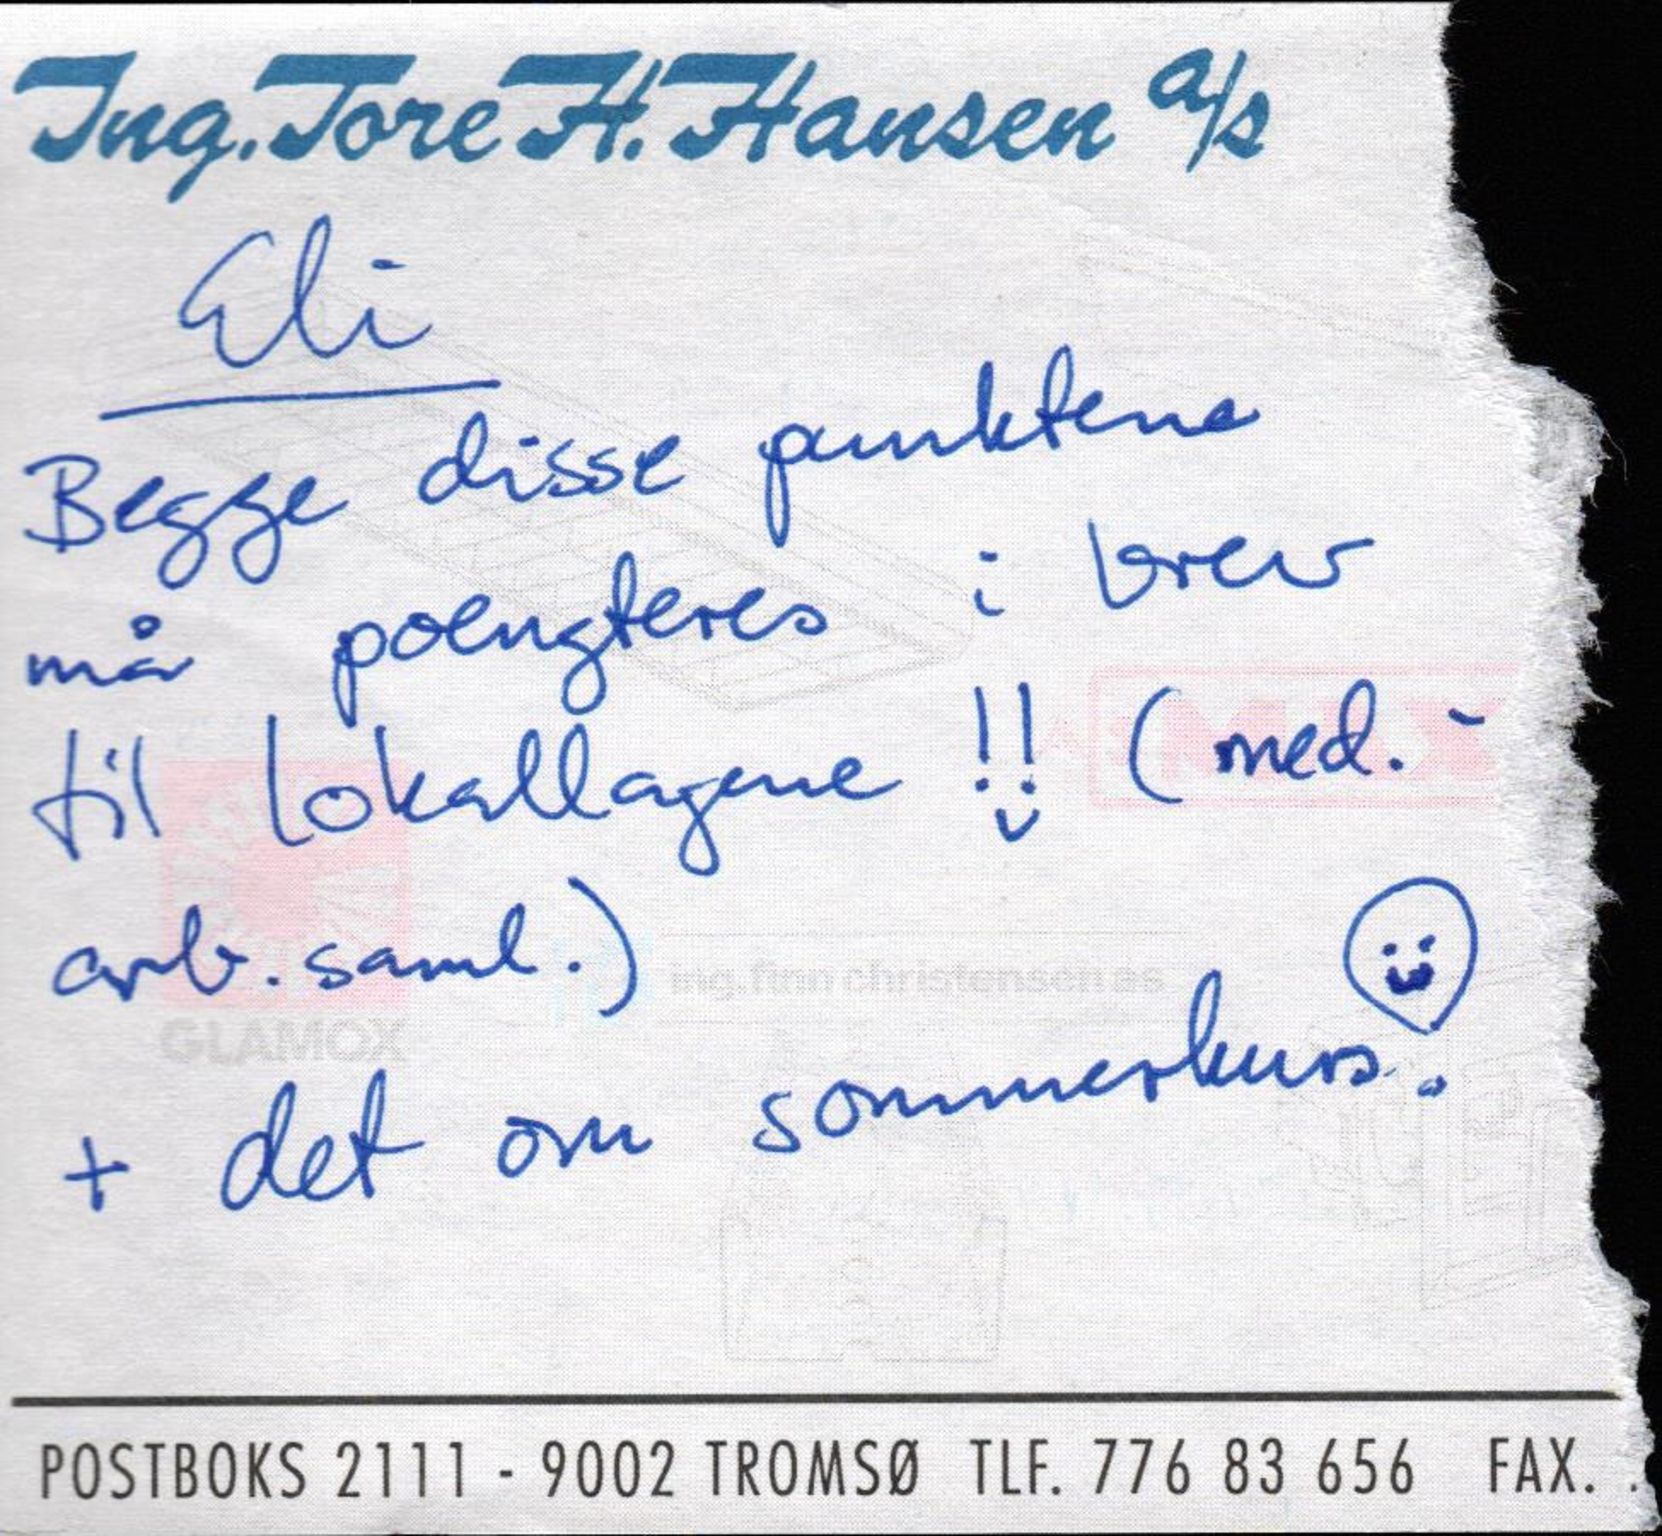 Ing. Tore H. Hansen a/s
Eli
Begge disse punktene
må poengteres i brev
til lokallagene !! (med.-
arb. saml.)
+ det om sommerkurs!
ing.finn christensen as
GLAMOX
POSTBOKS 2111 - 9002 TROMSØ TLF. 776 83 656 FAX.